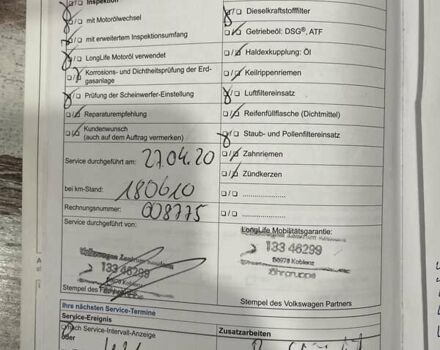 Inspektion
mit Motorölwechsel
mit erweitertem Inspektionsumfang
LongLife Motoröl verwendet
Korrosions- und Dichtheitsprüfung der Erd-
gasanlage
Prüfung der Scheinwerfer-Einstellung
Reparaturempfehlung
Kundenwunsch
(auch auf dem Auftrag vermerken)
Service durchgeführt am: 27.04.20
bei km-Stand: 180610
Rechnungsnummer: 608775
Service durchgeführt von:
Volkswagen Zentrum
133 46299
56070 Koblenz
Stempel des
Dieselkraftstofffilter
Getriebeöl: DSG®, ATF
Haldexkupplung: Öl
Keilrippenriemen
Luftfiltereinsatz
Reifenfüllflasche (Dichtmittel)
Staub- und Pollenfiltereinsatz
Zahnriemen
Zündkerzen
LongLife Mobilitätsgarantie:
133 46299
56070 Koblenz
Löhrgruppe
Stempel des Volkswagen Partners
Ihre nächsten Service-Termine
Service-Ereignis
Zusatzarbeiten
nach Service-Intervall-Anzeige
oder